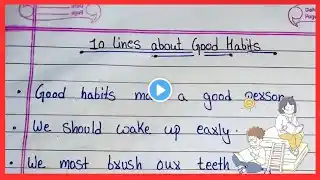 10 lines about Good Habits
Good habits mak a good person
We should wake up early.
We most brush our teeth